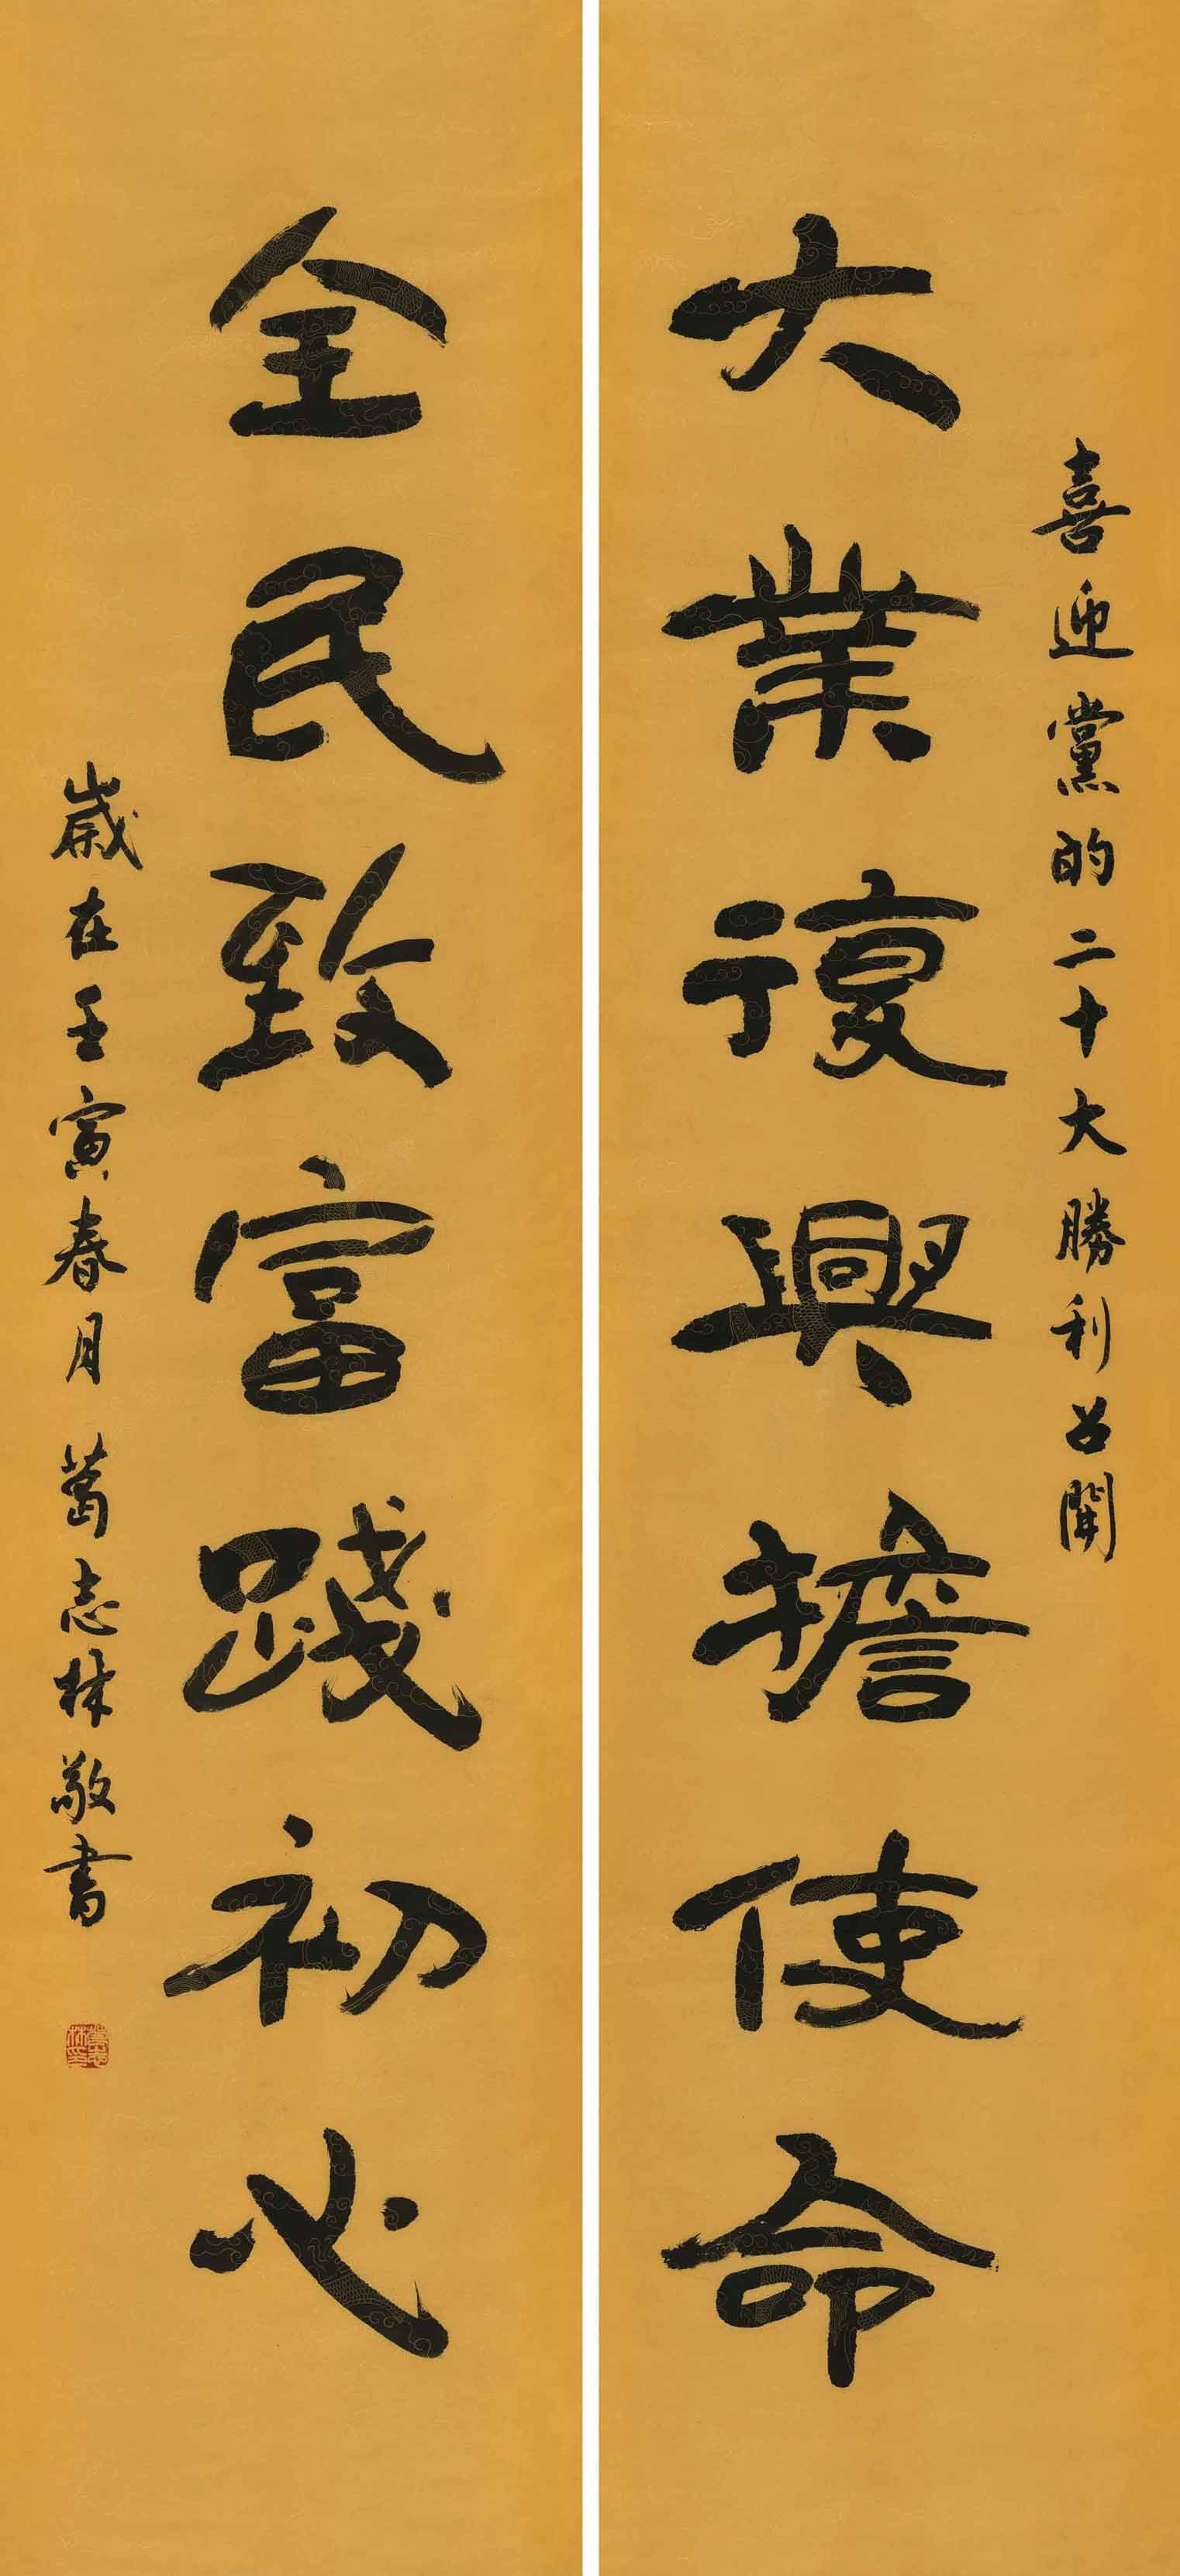 喜迎黨的二十大勝利召開
大業復興擔使命
全民致富踐初心
歲在壬寅春月 葛志林敬書
葛志林印